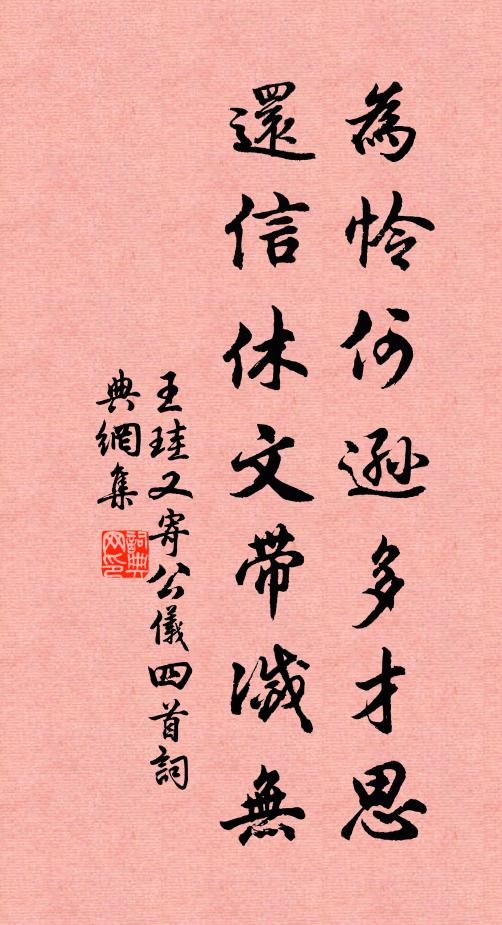 為憐何遜多才思
還信休文帶減無
王珪又寄公儀四首詞
典網集
詞典
网印